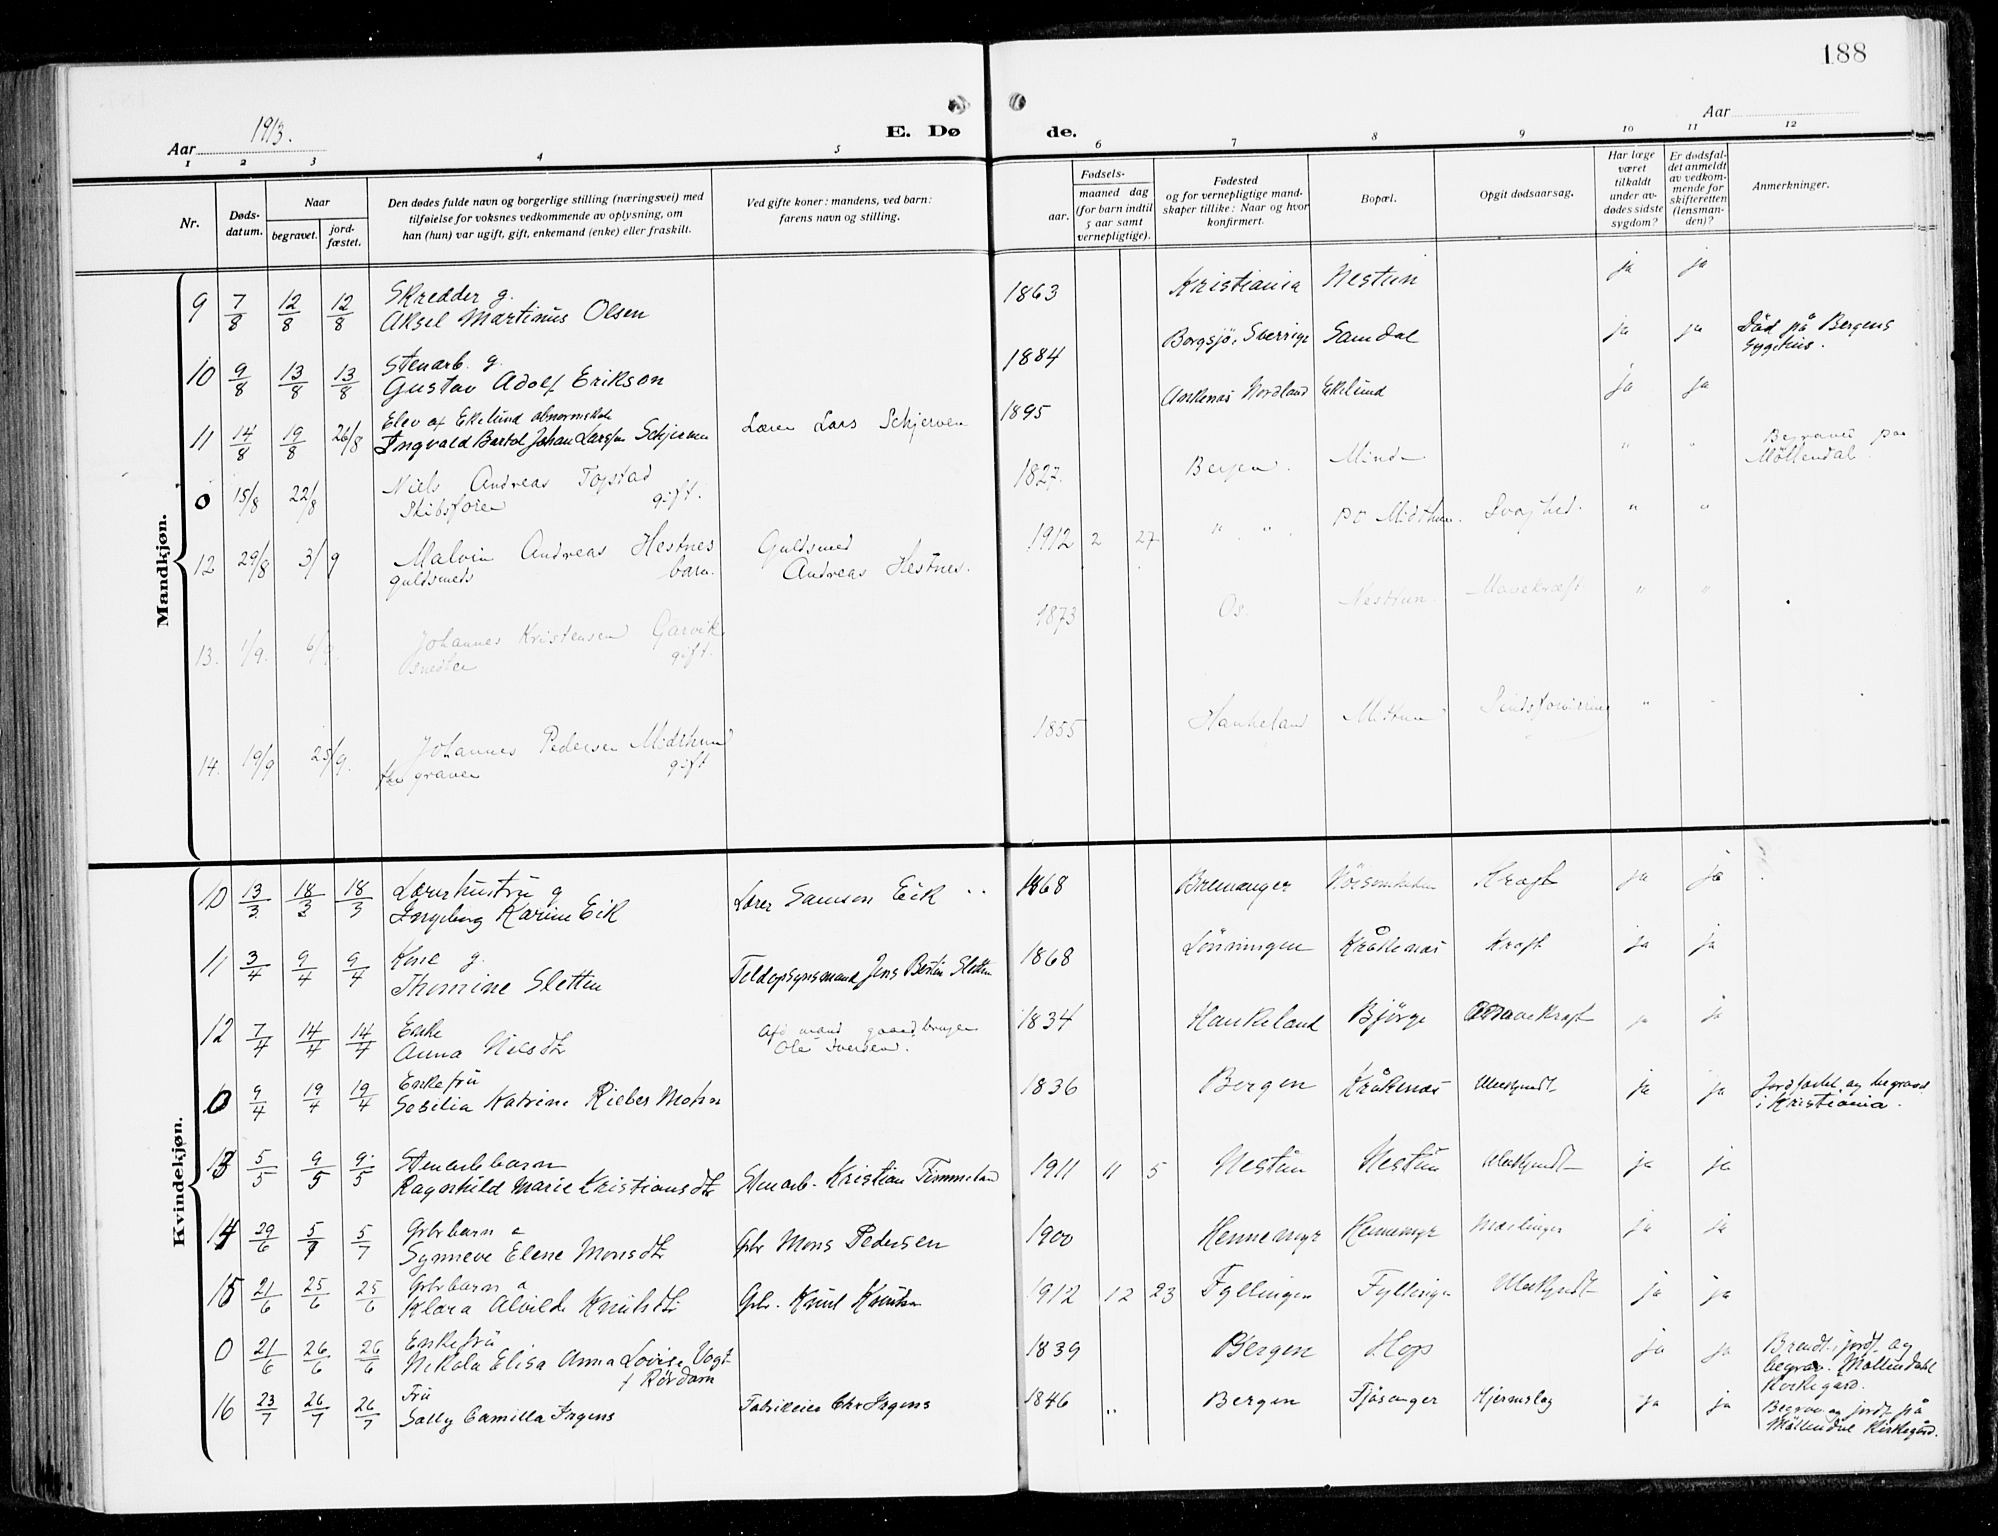 188
Aar 1913.
E. Dø de.
Aar
1 2 3 4 5 6 7 8 9 10 11 12
Nr.
Døds-
datum.
Naar
begravet.
jord-
fæstet.
Den dødes fulde navn og borgerlige stilling (næringsvei) med
tilføielse for voksnes vedkommende av oplysning, om
han (hun) var ugift, gift, enkemand (enke) eller fraskilt.
Ved gifte koner: mandens, ved barn:
farens navn og stilling.
Fødsels-
aar.
maaned dag
(for barn indtil
5 aar samt
vernepligtige).
Fødested
og for vernepligtige mand-
skaper tillike: Naar og hvor
konfirmert.
Bopæl.
Opgit dødsaarsag.
Har læge
været
tilkaldt
under av-
dødes sidste
sygdom?
Er dødsfal-
det anmeldt
av vedkom-
mende for
skifteretten
(lensman-
den)?
Anmerkninger.
Mandkjøn.
9 7/8 12/8 12/8 Skredder g.
Aksel Martinus Olsen 1863 Kristiania Nestun ja ja
10 9/8 13/8 13/8 Stenarb. g.
Gustav Adolf Erikson 1884 Borgsjö, Sverrige Samdal ja ja Död på Bergens
Sygehus.
11 14/8 19/8 26/8 Elev af Ekelund abnormskole
Ingvald Bartol Johan Larssen Schjerven Lærer Lars Schjerven 1895 Ankenas Nordland Ekelund ja ja
0 15/8 22/8 Niels Andreas Fopstad
Skibsfører gift. 1827. Bergen. Minde " " Begravet paa
Møllendal.
12 29/8 3/9 Malvin Andreas Hestnes
guldsmeds barn. Guldsmed
Andreas Hestnes. 1912 2 27 " " Midthun. Svaghed. " "
13. 1/9. 6/9. Johannes Kristensen Garvik
gift. 1873 Os. Nesttun. Mavekræft " "
14. 19/9 25/9. Johannes Pedersen Midthun
graver gift 1855 Haukeland Mittun Sindsforvirring "
Kvindekjøn.
10 13/3 18/3 18/3 Lærerhustru g
Ingeborg Karine Eik Lærer Samson Eik 1868 Bremanger Kræft ja ja
11 3/4 9/4 9/4 Kone g.
Thomine Sletten Toldopsynsmand Jens Bertin Sletten 1868 Lönningen Kråkenæs Kræft ja ja
12 7/4 14/4 14/4 Enke
Anna Nilsdtr Afd. mand gaardbruger
Ole Iversen. 1834 Haukeland Björge Mavekræft ja ja
0 9/4 19/4 19/4 Enkefru
Sesilia Katrine Rieber Mohn 1836 Bergen Kråkenæs Ubekjendt ja ja Jordfæstet og begravet
i Kristiania.
13 5/5 9/5 9/5 Stenarb barn
Ragnhild Marie Kristiansdtr Stenarb. Kristian Timmeland 1911 11 5 Nestun Nestun Ubekjendt ja ja
14 29/6 5/7 5/7 Gbr barn a
Synneve Elene Monsdtr Gbr Mons Pedersen 1900 Hennemyr Hennemyr Meslinger ja ja
15 21/6 25/6 25/6 Gbrbarn a
Klara Alvilde Knutsdtr Gbr. Knut Knutsen 1912 12 23 Fyllingen Fyllingen Ubekjendt ja ja
0 21/6 26/6 26/6 Enkefru
Nikola Elisa Anna Lovise Vogt
f Rördam 1839 Bergen Hop ja ja Brendt, jordf. og
begrav. Möllendahl
Kirkegård.
16 23/7 26/7 26/7 Fru
Sally Camilla Irgens Fabrikeier Chr Irgens 1846 " Bergen Fjösanger Hjerneslag ja ja Begrav. og jordf. på
Möllendal Kirkegård.